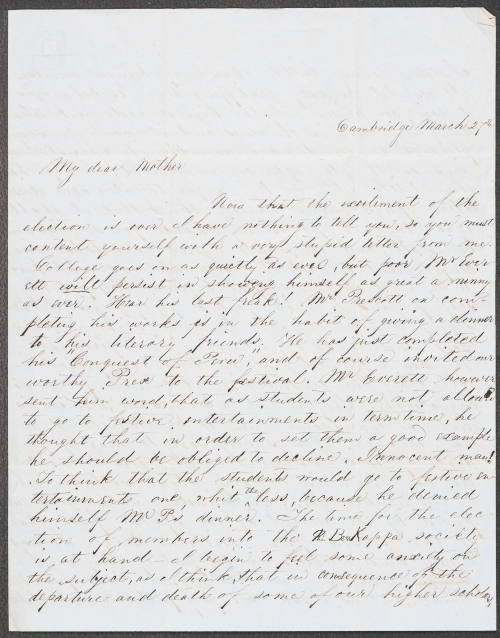 Cambridge March 27th
My dear Mother
Now that the excitement of the
election is over I have nothing to tell you, so you must
content yourself with a very stupid letter from me.
College goes on as quietly as ever, but poor Mr Ever-
ett will persist in showing himself as great a ninny
as ever. Hear his last freak! Mr Prescott on com-
pleting his works is in the habit of giving a dinner
to his literary friends. He has just completed
his "Conquest of Peru", and of course invited our
worthy Prex to the festival. Mr Everett however
sent him word, that as students were not allowed
to go to festive entertainments in term time, he
thought that in order to set them a good example
he should be obliged to decline. Innocent man!
To think that the students would go to festive en-
tertainments one whit the less, because he denied
himself Mr P's dinner. The time for the elec-
tion of members into the Φ.B.Kappa society
is at hand. I begin to feel some anxiety on
the subject, as I think, that in consequence of the
departure and death of some of our higher scholars,